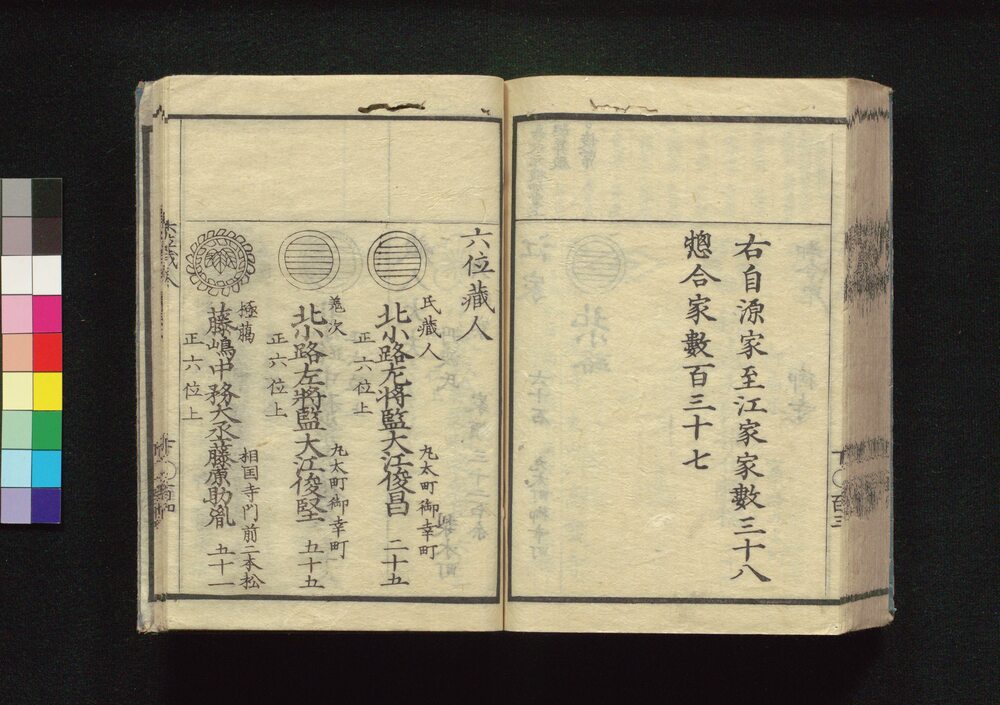 右自源家至江家家數三十八
惣合家數百三十七
六位藏人
氏藏人 丸太町御幸町
北小路左将監大江俊昌 二十五
正六位上
差次 丸太町御幸町
北小路左將監大江俊堅 五十五
正六位上
極﨟 相国寺門前二本松
藤嶋中務大丞藤原助胤 五十一
正六位上